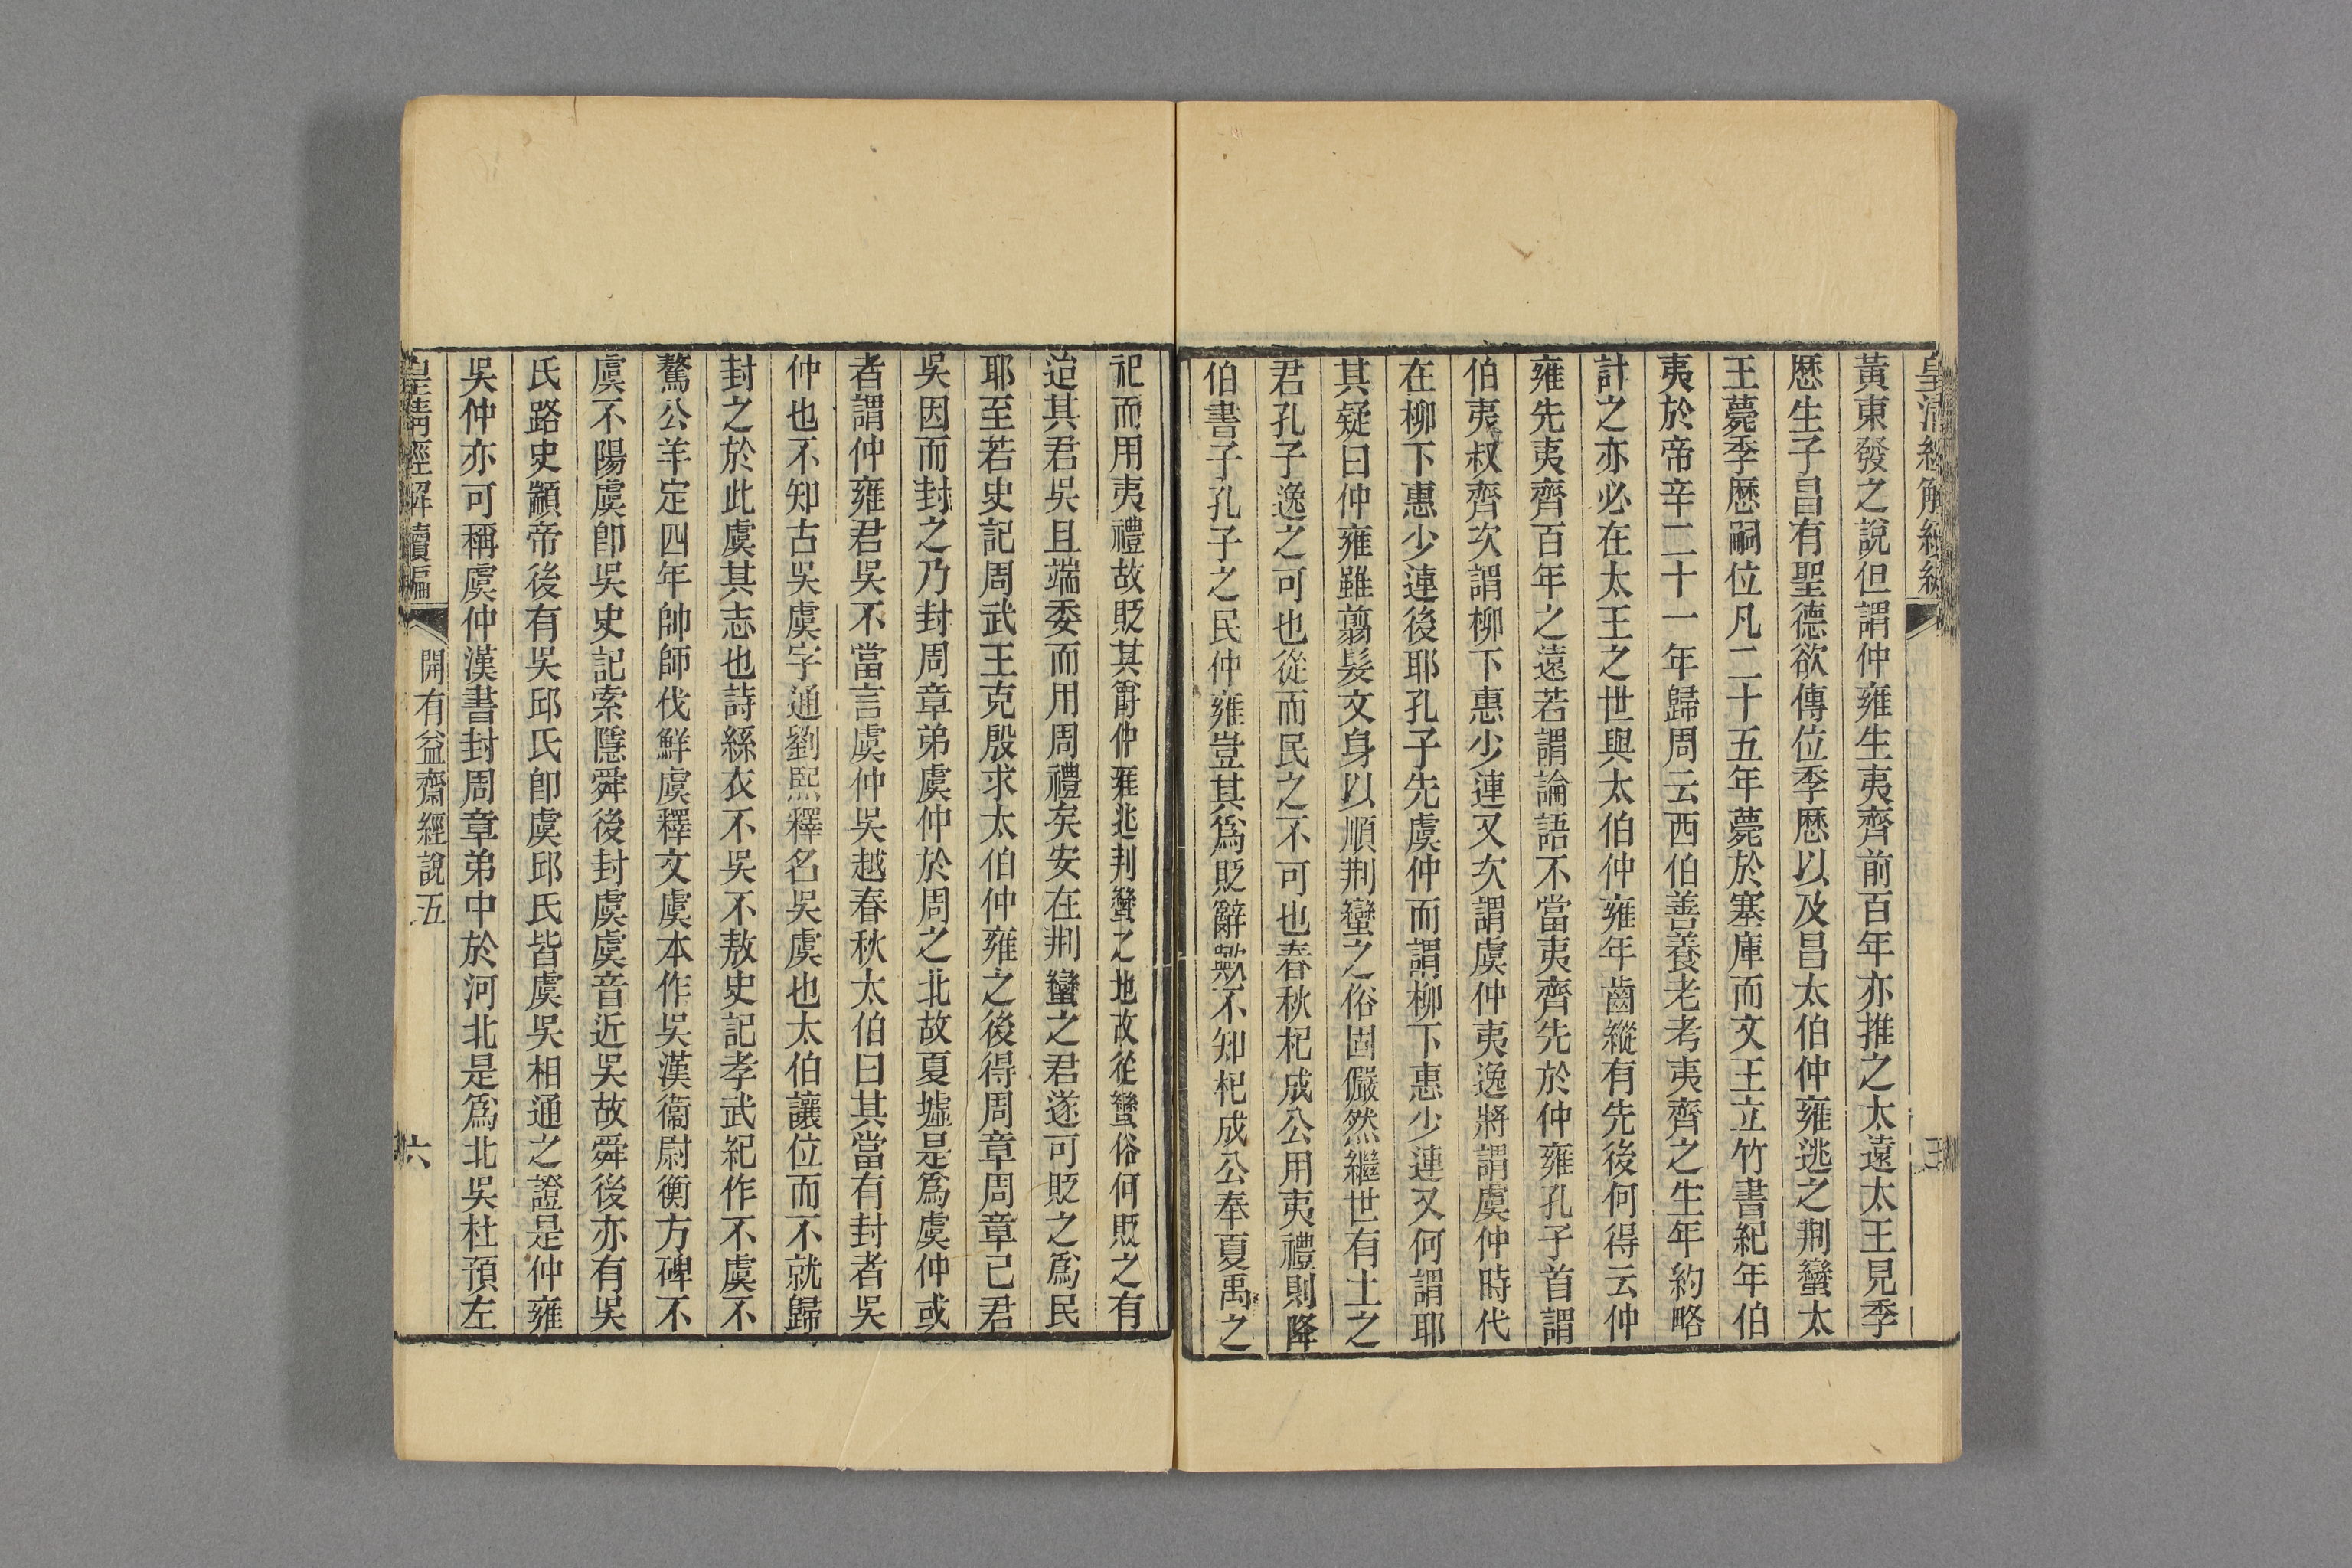 皇清經解續編
三
黃東發之說但謂仲雍生夷齊前百年亦推之太遠太王見季
歷生子昌有聖德欲傳位季歷以及昌太伯仲雍逃之荆蠻太
王薨季歷嗣位凡二十五年薨於塞庫而文王立竹書紀年伯
夷於帝辛二十一年歸周云西伯善養老考夷齊之生年約略
計之亦必在太王之世與太伯仲雍年齒縱有先後何得云仲
雍先夷齊百年之遠若謂論語不當夷齊先於仲雍孔子首謂
伯夷叔齊次謂柳下惠少連又次謂虞仲夷逸將謂虞仲時代
在柳下惠少連後耶孔子先虞仲而謂柳下惠少連又何謂耶
其疑曰仲雍雖翦髮文身以順荆蠻之俗固儼然繼世有土之
君孔子逸之可也從而民之不可也春秋杞成公用夷禮則降
伯書子孔子之民仲雍豈其爲貶辭歟不知杞成公奉夏禹之
祀而用夷禮故貶其爵仲雍逃荆蠻之地故從蠻俗何貶之有
迨其君吳且端委而用周禮矣安在荆蠻之君遂可貶之爲民
耶至若史記周武王克殷求太伯仲雍之後得周章周章已君
吳因而封之乃封周章弟虞仲於周之北故夏墟是爲虞仲或
者謂仲雍君吳不當言虞仲吳越春秋太伯曰其當有封者吳
仲也不知古吳虞字通劉熙釋名吳虞也太伯讓位而不就歸
封之於此虞其志也詩絲衣不吳不敖史記孝武紀作不虞不
驁公羊定四年帥師伐鮮虞釋文虞本作吳漢衞尉衡方碑不
虞不陽虞卽吳史記索隱舜後封虞虞音近吳故舜後亦有吳
氏路史顓帝後有吳邱氏卽虞邱氏皆虞吳相通之證是仲雍
吳仲亦可稱虞仲漢書封周章弟中於河北是爲北吳杜預左
皇清經解續編
開有益齋經說五
六